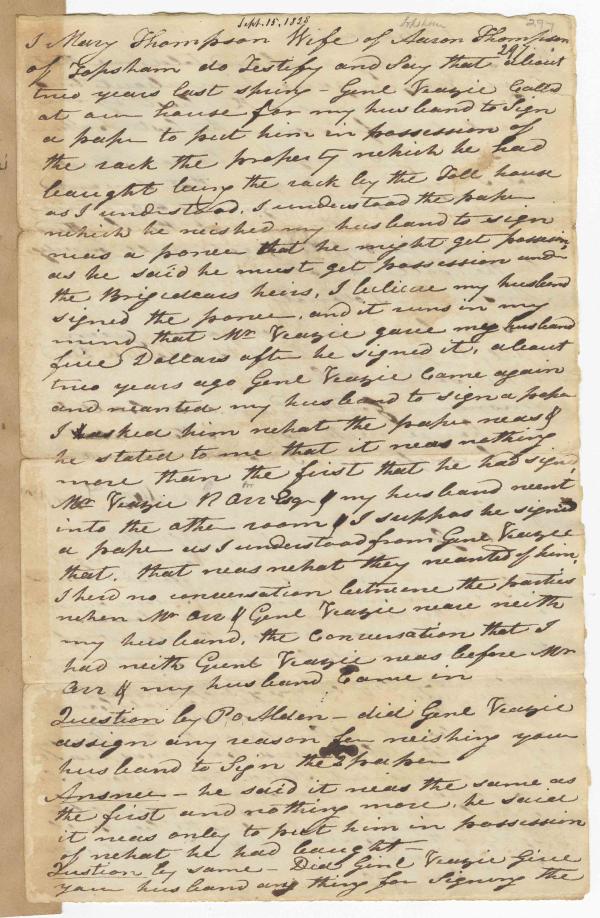 Sept. 15, 1828
Topsham
297
I Mary Thompson Wife of Aaron Thompson
297
of Topsham do Testify and Say that about
two years last spring - Genl Veazie Calld
at our house for my husband to Sign
a pape to put him in possession of
the rack the property which he had
baught being the rack by the Toll house
as I understood, I understood the pape
which he wished my husband to sign
was a poner that he might get possion
as he said he must get possession and
the Brigidears heirs, I believe my husband
signed the poner, and it runs in my
mind that Mr Veazie gave my husband
five Dollars after he signed it, about
two years ago Genl Veazie Came again
and wanted my husband to sign a pape
I asked him what the pape was &
he stated to me that it was nothing
more than the first that he had signd,
Mr Veazie P Orr Esq & my husband went
into the other room & I suppos he signed
a pape as I understood from Genl Veazie
that, that was what they wanted of him,
I herd no conversation betwene the parties
when Mr Orr & Genl Veazie ware with
my husband, the Conversation that I
had with Genl Veazie was before Mr
Orr & my husband Came in
Question by Po Alden - did Genl Veazie
assign any reason for wishing your
husband to Sign the pape
Answer - he said it was the same as
the first and nothing more, he said
it was only to put him in possession
of what he had baught -
Qustion by same - Did Genl Veazie Give
your husband any thing for Signing the